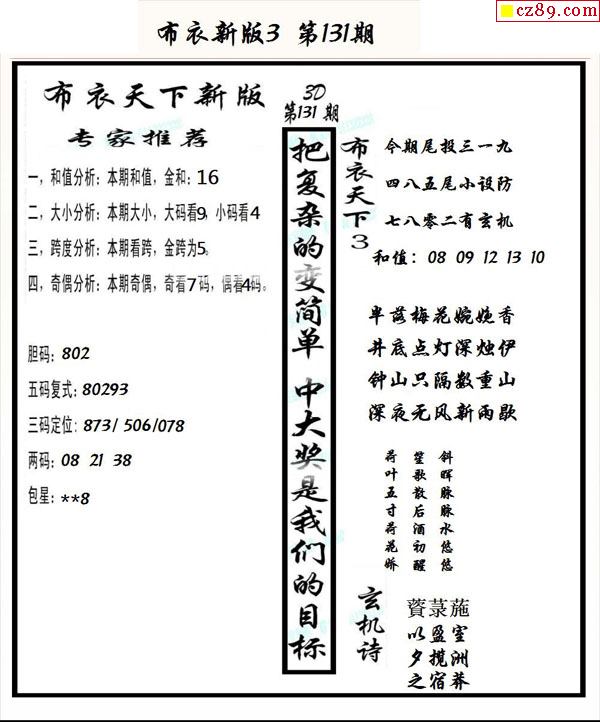 cz89.com
布衣新版3 第131期
布衣天下新版
专家推荐
一，和值分析：本期和值，金和：16
二，大小分析：本期大小，大码看9，小码看4
三，跨度分析：本期看跨，金跨为5。
四，奇偶分析：本期奇偶，奇看7码，偶看4码。
胆码：802
五码复式：80293
三码定位：873/ 506/078
两码：08 21 38
包星：**8
3D
第131期
把复杂的变简单 中大奖是我们的目标
布衣天下3
今期尾投三一九
四八五尾小设防
七八零二有玄机
和值：08 09 12 13 10
半落梅花婉娩香
井底点灯深烛伊
钟山只隔数重山
深夜无风新雨歇
斜晖脉脉水悠悠
笙歌散后酒初醒
荷叶五寸荷花娇
玄机诗
薋菉葹
以盈室
夕揽洲
之宿莽